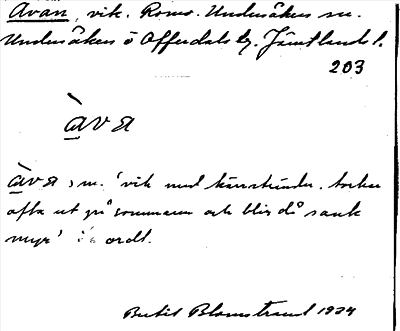 Avan, vik. Romo. Undersåkers sn.
Undersåkers o Offerdals tg. Jämtlands l.
203
àvA
àvA, m. 'vik med kärrstränder. torkar
ofta ut på sommaren och blir då sank
myr' i ordl.
Bertil Blomstrand 1934